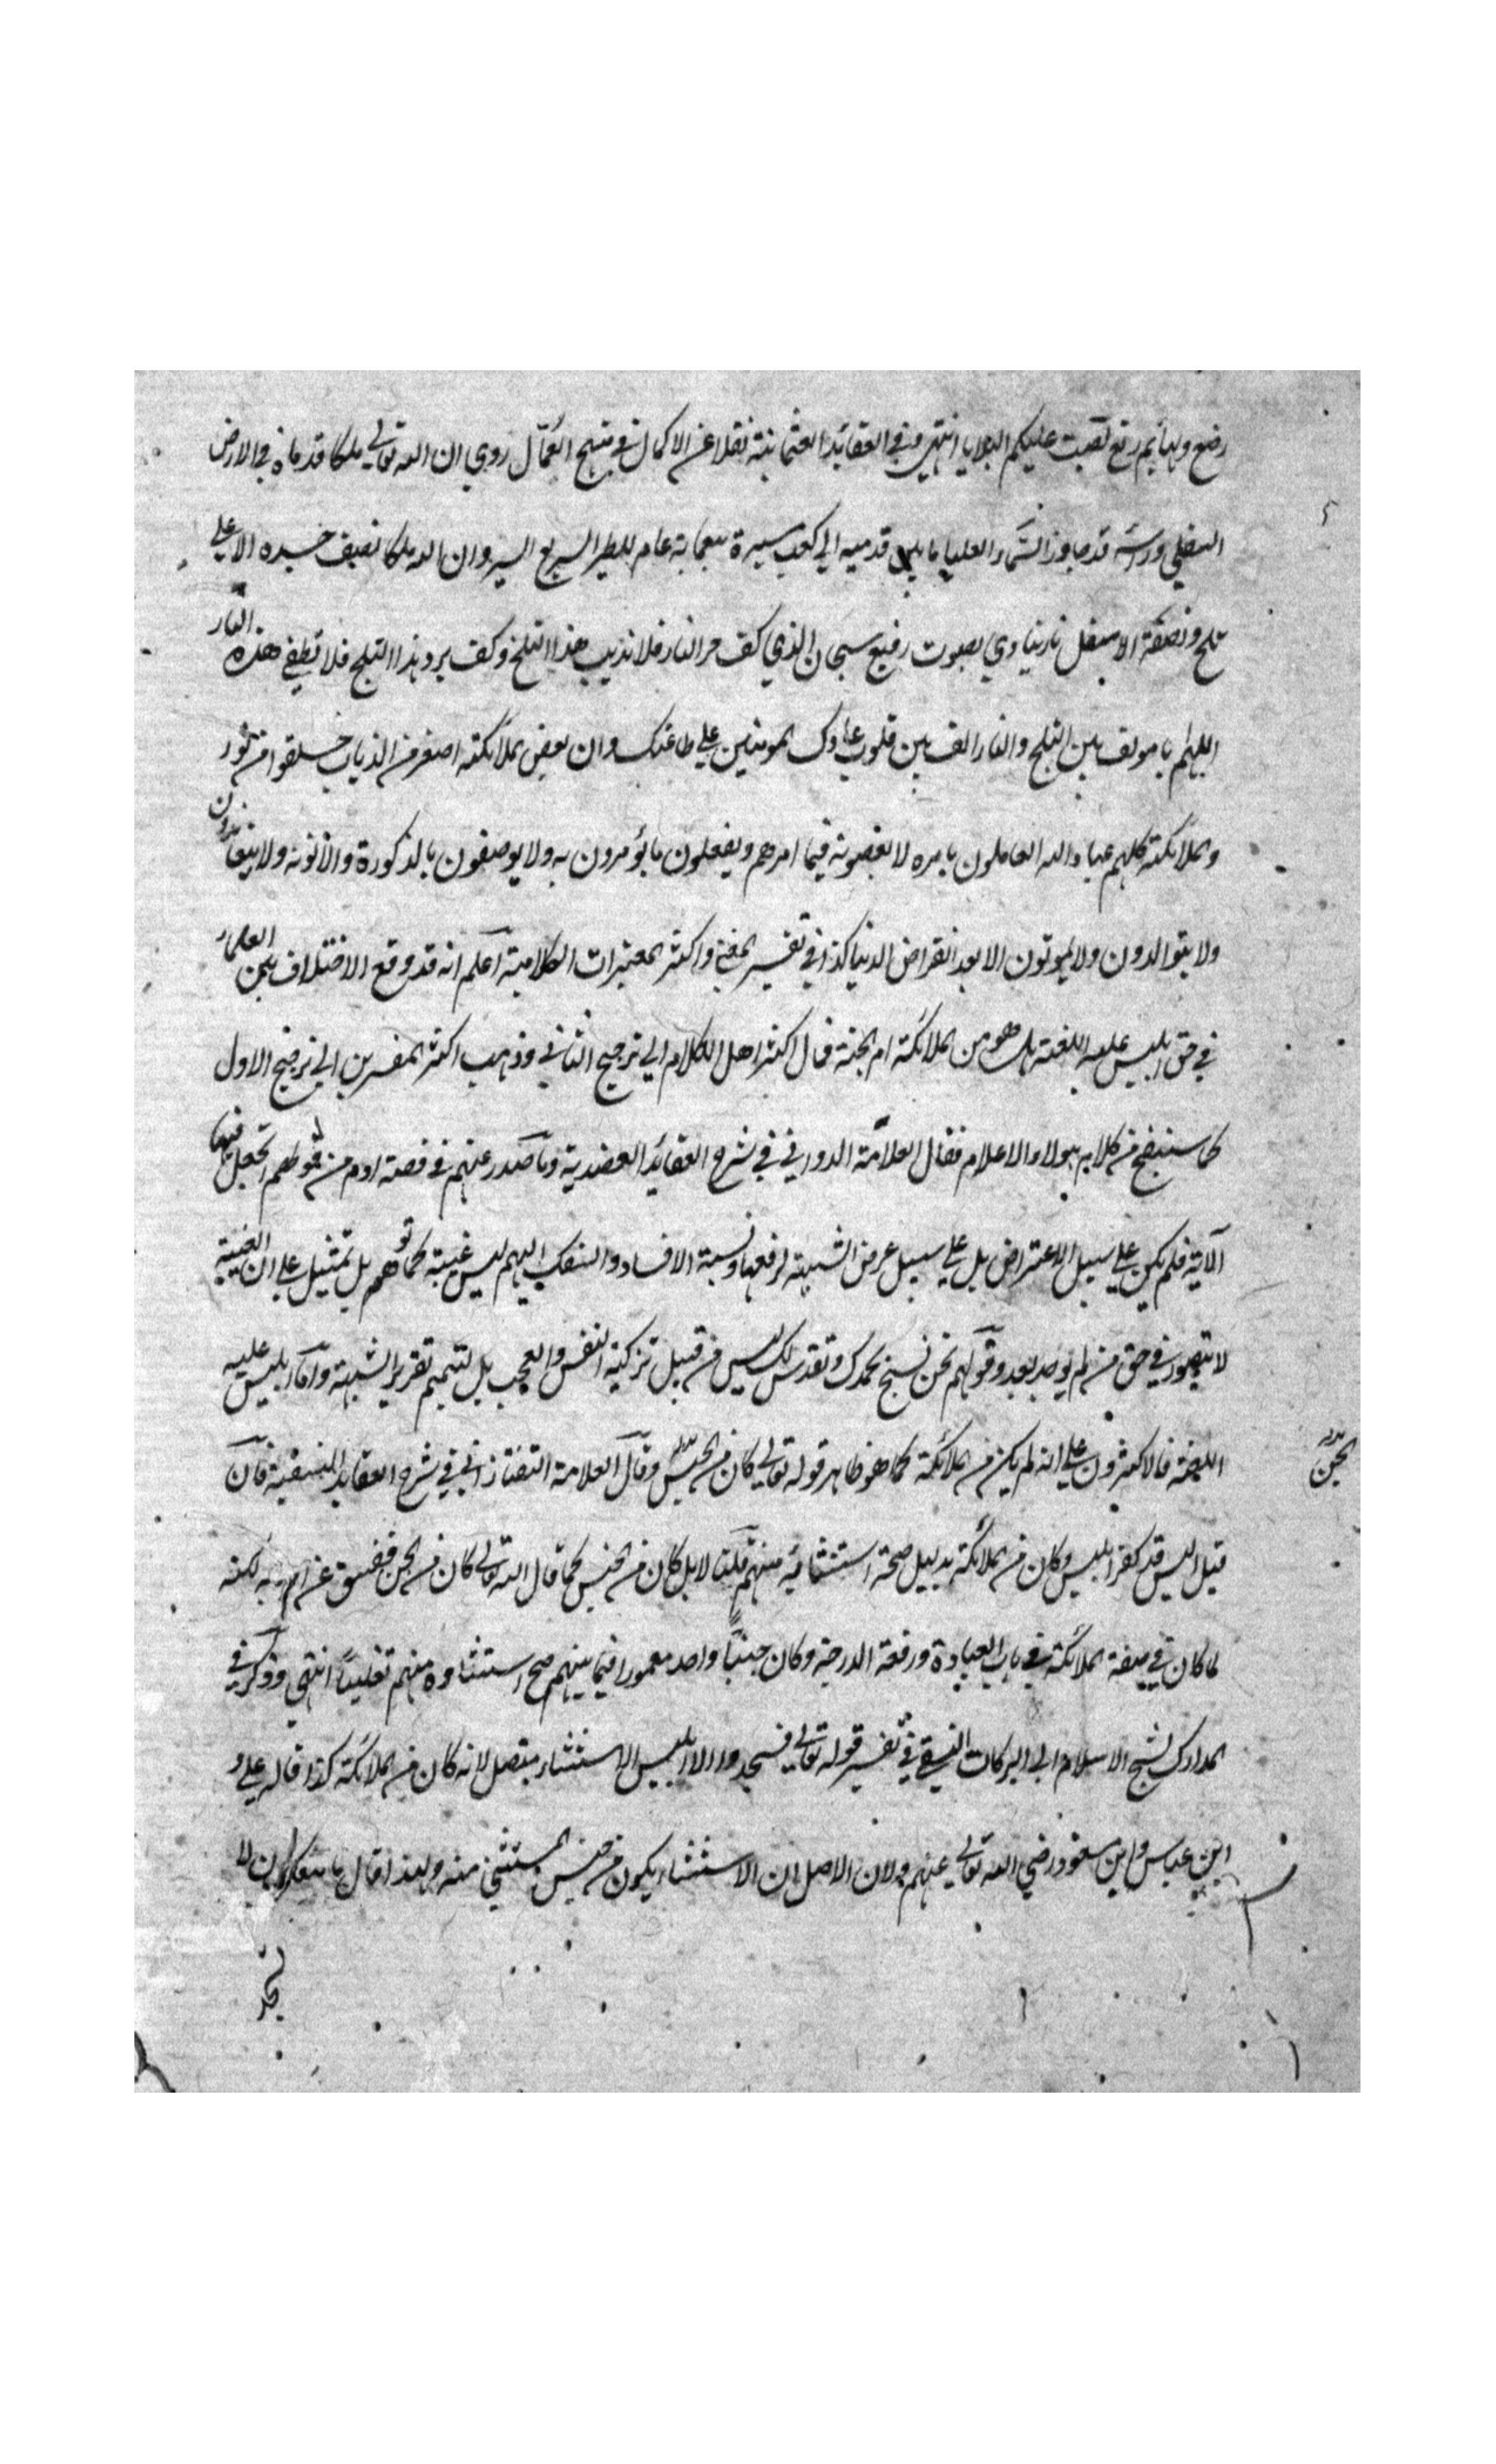 رضع وبهايم رتع لصبت عليكم البلايا انتهي وفي العقائد العثمانية نقلا عن الاكمال في منهج العمال روي ان الله تعالي ملكا قدماه في الارض
السفلي وراسه قد جاوز السماء العليا ما بين قدميه الي كعب مسيرة سبعماية عام للطير السريع السير وان الله ملكا نصف جسده الاعلي
ثلج ونصفه الاسفل نار ينادي بصوت رفيع سبحان الذي كف حر النار فلا تذيب هذا الثلج وكف برد هذا الثلج فلا تطفي هذه النار
اللهم يا مولف بين الثلج والنار الف بين قلوب عبادك المومنين علي طاعتك وان بعض الملائكة اصغر من الذباب خلقوا من نور
والملائكة كلهم عباد الله العاملون بامره لا يعصونه فيما امرهم ويفعلون ما يؤمرون به ولا يوصفون بالذكورة والانوثة ولا يتغذون
ولا يتوالدون ولا يموتون الا بعد انقراض الدنيا كذا في تفسير المغني واكثر المعتبرات الكلامية اعلم انه قد وقع الاختلاف بين العلماء
في حق ابليس عليه اللعنة هل هو من الملائكة ام الجنة فمال اكثر اهل الكلام الي ترجيح الثاني وذهب اكثر المفسرين الي ترجيح الاول
كما ستتضح من كلام هولاء الاعلام فقال العلامة الدواني في شرح العقائد العضدية وما صدر عنهم في قصة ادم من قولهم اتجعل فيها
الآية فلم يكن علي سبيل الاعتراض بل علي سبيل عرض الشبهة لرفعها ونسبة الافساد والسفك اليهم ليس غيبة كما توهم بل تمثيل علي ان الغيبة
لا يتصور في حق من لم يوجد بعد وقولهم نحن نسبح بحمدك ونقدس لك ليس من قبيل تزكية النفس والعجب بل لتتميم تقرير الشبهة واما ابليس عليه
اللعنة فالاكثرون علي انه لم يكن من الملائكة كما هو ظاهر قوله تعالي كان من الجنس وقال العلامة التفتازاني في شرح العقايد النسفية فان
الجن
قيل اليس قد كفر ابليس وكان من الملائكة بدليل صحة استثنائه منهم قلنا لا بل كان من الجنس كما قال الله تعالي كان من الجن ففسق عن امر ربه لكنه
لما كان في صفة الملائكة في باب العبادة ورفعة الدرجة وكان جنيا واحد معمورا فيما بينهم صح استثناوه منهم تغليبا انتهي وذكر في
المدارك لشيخ الاسلام ابي البركات النسفي في تفسير قوله تعالي فسجدوا الا ابليس الاستثناء متصل لانه كان من الملائكة كذا قاله علي و
ابن عباس وابن مسعود رضي الله تعالي عنهم ولان الاصل ان الاستثناء يكون من جنس المستثني منه ولهذا قال ما منعك ان لا
تسجد